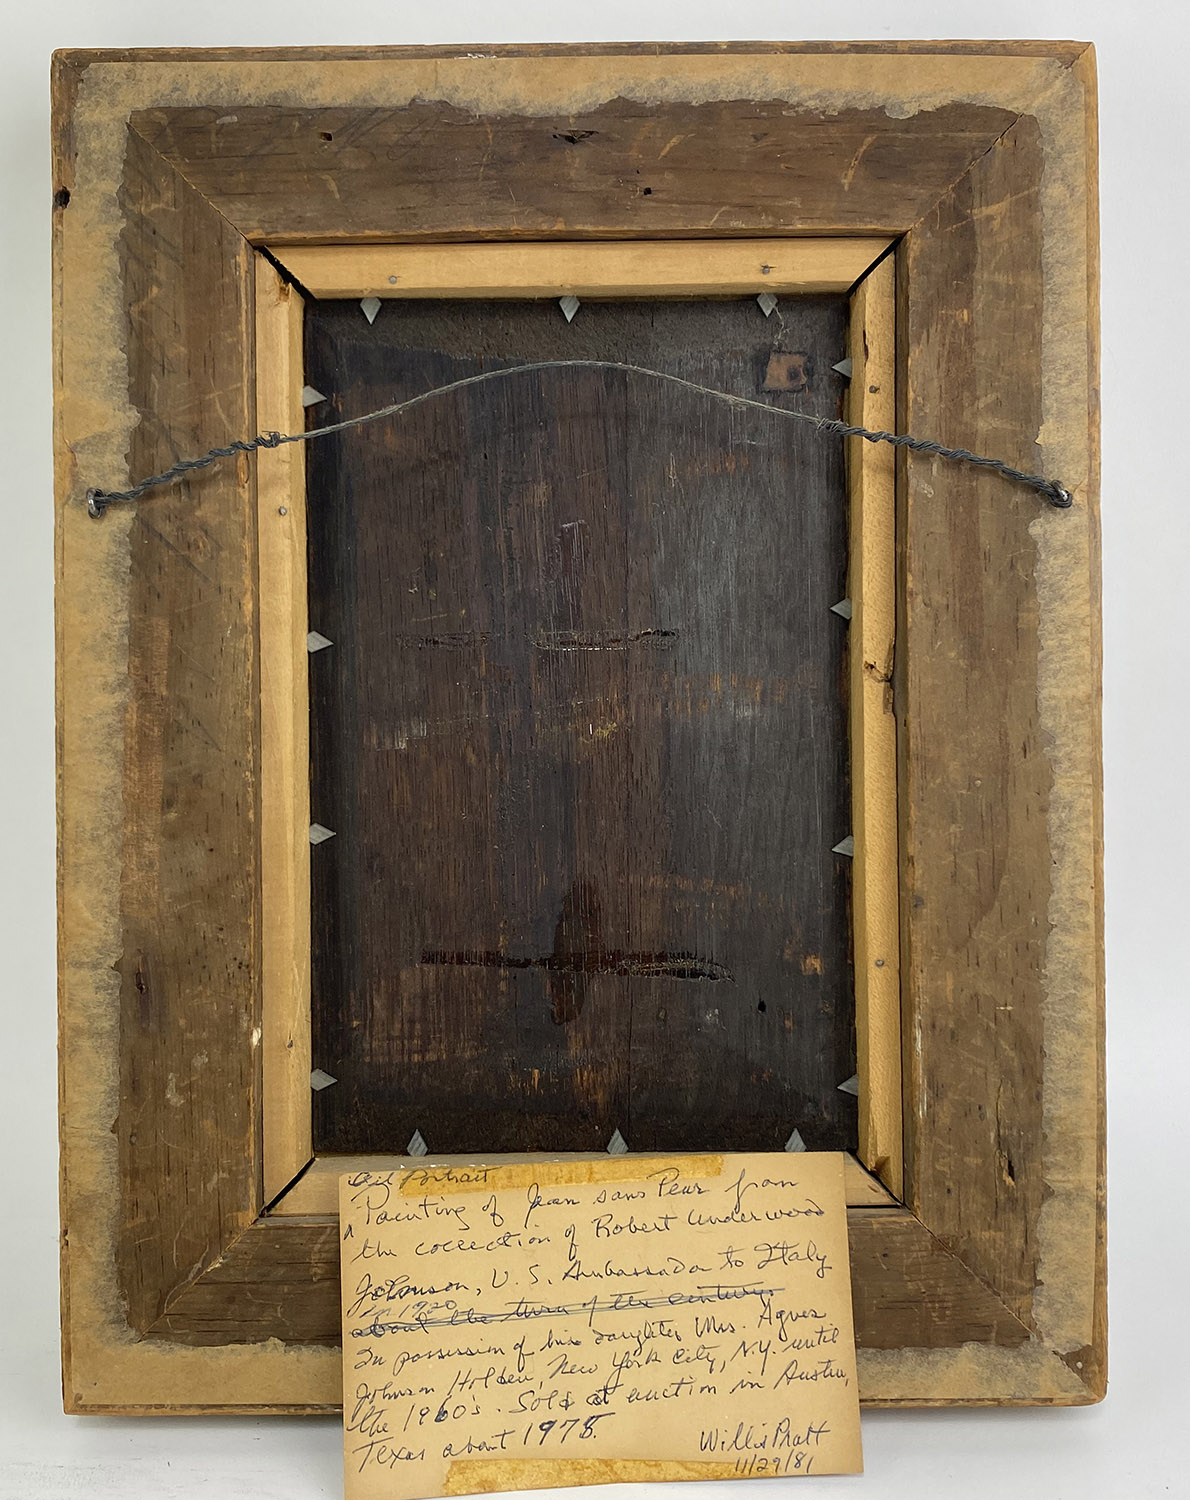 Oil Portrait
A Painting of Jean sans Peur from
the collection of Robert Underwood
Johnson, U. S. Ambassador to Italy
in 1920
about the turn of the century.
In possession of his daughter Mrs. Agnes
Johnson Holden, New York City, N.Y. until
the 1960's. Sold at auction in Austin,
Texas about 1975.
Willis Pratt
11/29/81